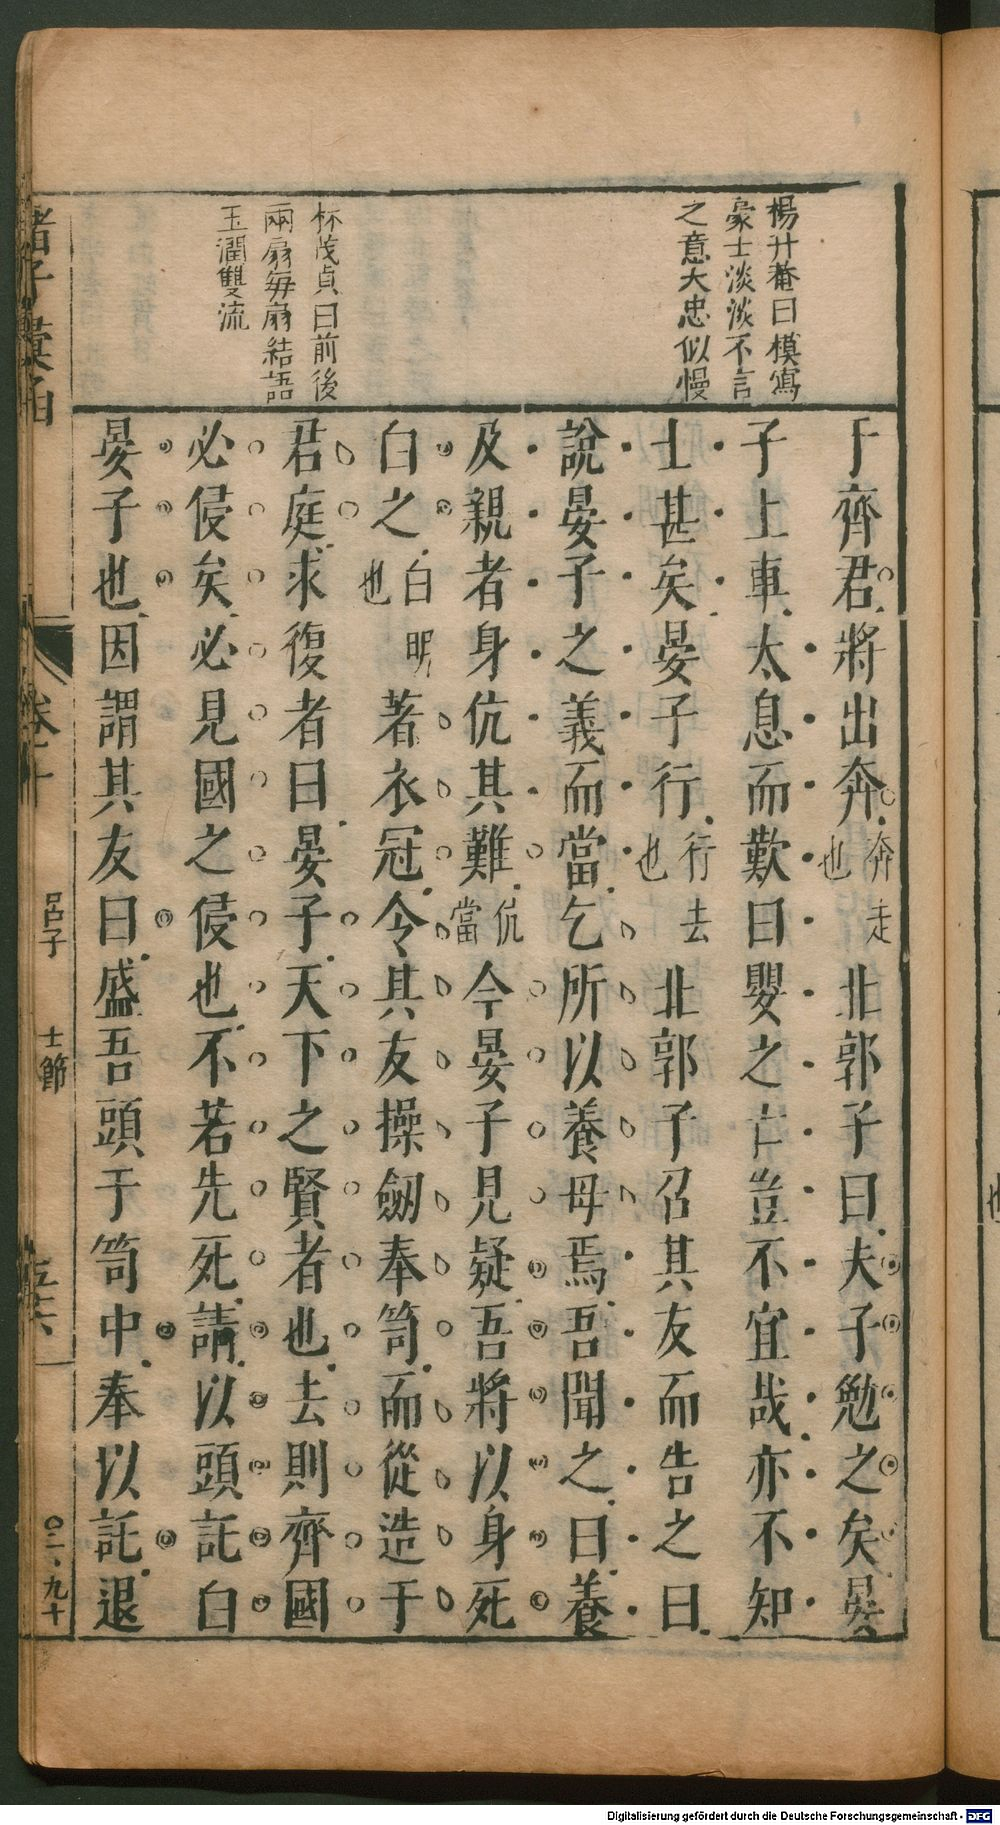 楊升菴曰模寫
豪士淡淡不言
之意大忠似慢
林茂貞曰前後
兩扇每扇結語
玉潤雙流
于齊君將出奔奔走也北郭子曰夫子勉之矣晏
子上車太息而歎曰嬰之亡豈不宜哉亦不知
士甚矣晏子行行去也北郭子召其友而告之曰
說晏子之義而當乞所以養母焉吾聞之曰養
及親者身伉其難伉當今晏子見疑吾將以身死
白之白明也著衣冠令其友操劒奉笥而從造于
君庭求復者曰晏子天下之賢者也去則齊國
必侵矣必見國之侵也不若先死請以頭託白
晏子也因謂其友曰盛吾頭于笥中奉以託退
諸子彙函
卷十
呂子 士節
五六
〇二、九十
Digitalisierung gefördert durch die Deutsche Forschungsgemeinschaft - DFG